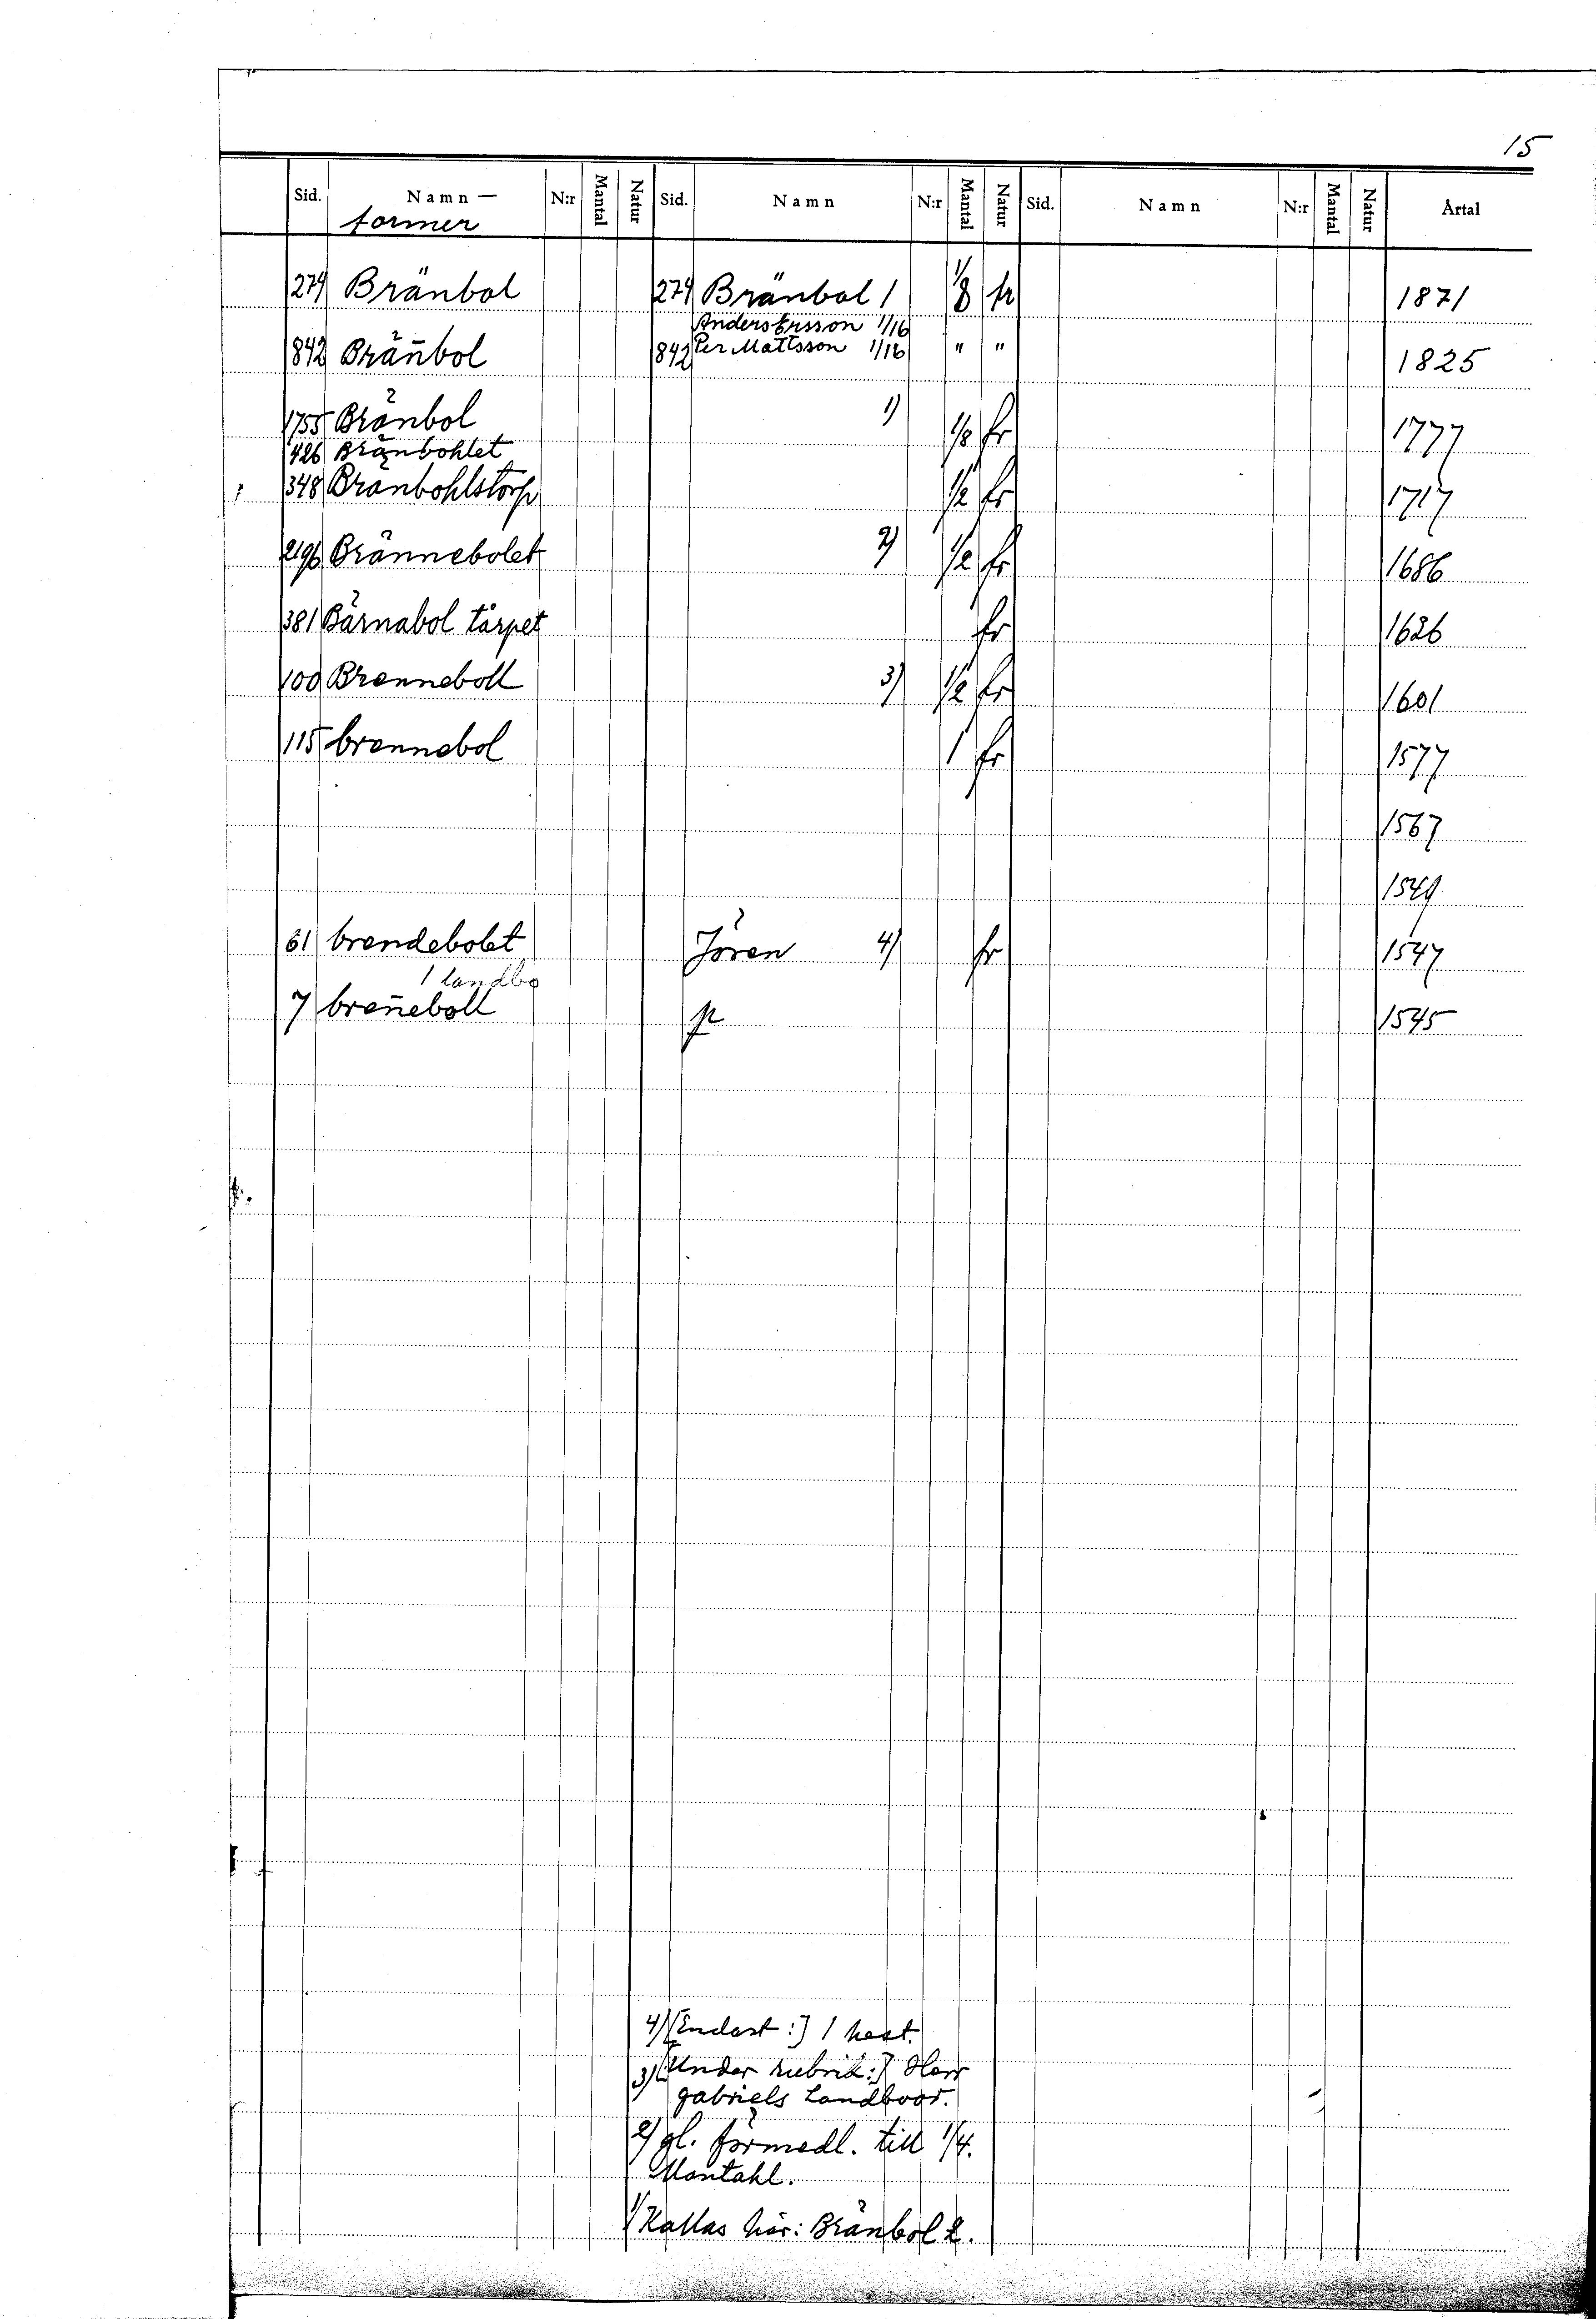 15
Sid. Namn — N:r Mantal Natur Sid. Namn N:r Mantal Natur Sid. Namn N:r Mantal Natur Årtal
former
274 Bränbol 274 Bränbol 1 1/8 fr 1871
Anders Ersson 1/16
842 Brän̄bol 842 Per Mattsson 1/16 " " 1825
1755 Bränbol 1) 1/8 fr 1777
426 Bränbohlet
348 Bränbohlstorp 1/2 fr 1717
2196 Brännebolet 2) 1/2 fr 1686
381 Bärnabol tårpet fr 1626
100 Brenneboll 3) 1/2 fr 1601
115 brennebol 1 fr 1577
1567
1549
61 brendebolet Jören 4) fr 1547
1 landbo
7 bren̄eboll fr 1545
4) [Endast:] 1 hest.
3) [Under rubrik:] Herr
gabriels Landboor.
2) gl. förmedl. till 1/4.
Mantahl.
1) Kallas här: Bränbol 2.